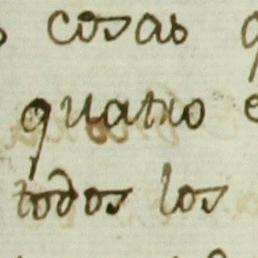 cosas
quatro
todos los